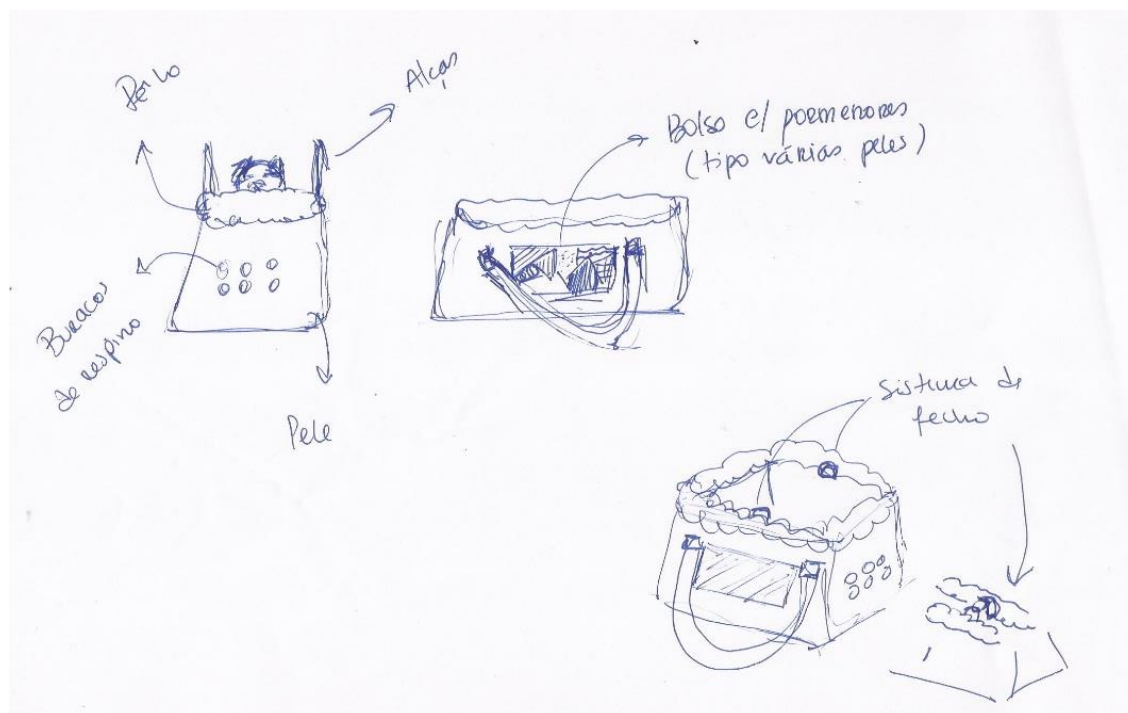 Pêlo
Alças
Bolso c/ pormenores
(tipo várias peles)
Buracos
de respiro
Pele
Sistema de
fecho